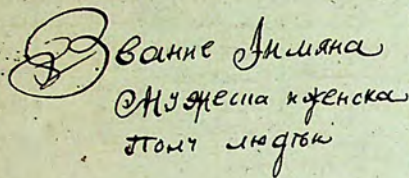 Звание Имяна
Мужеска и женска
Полу людѣи